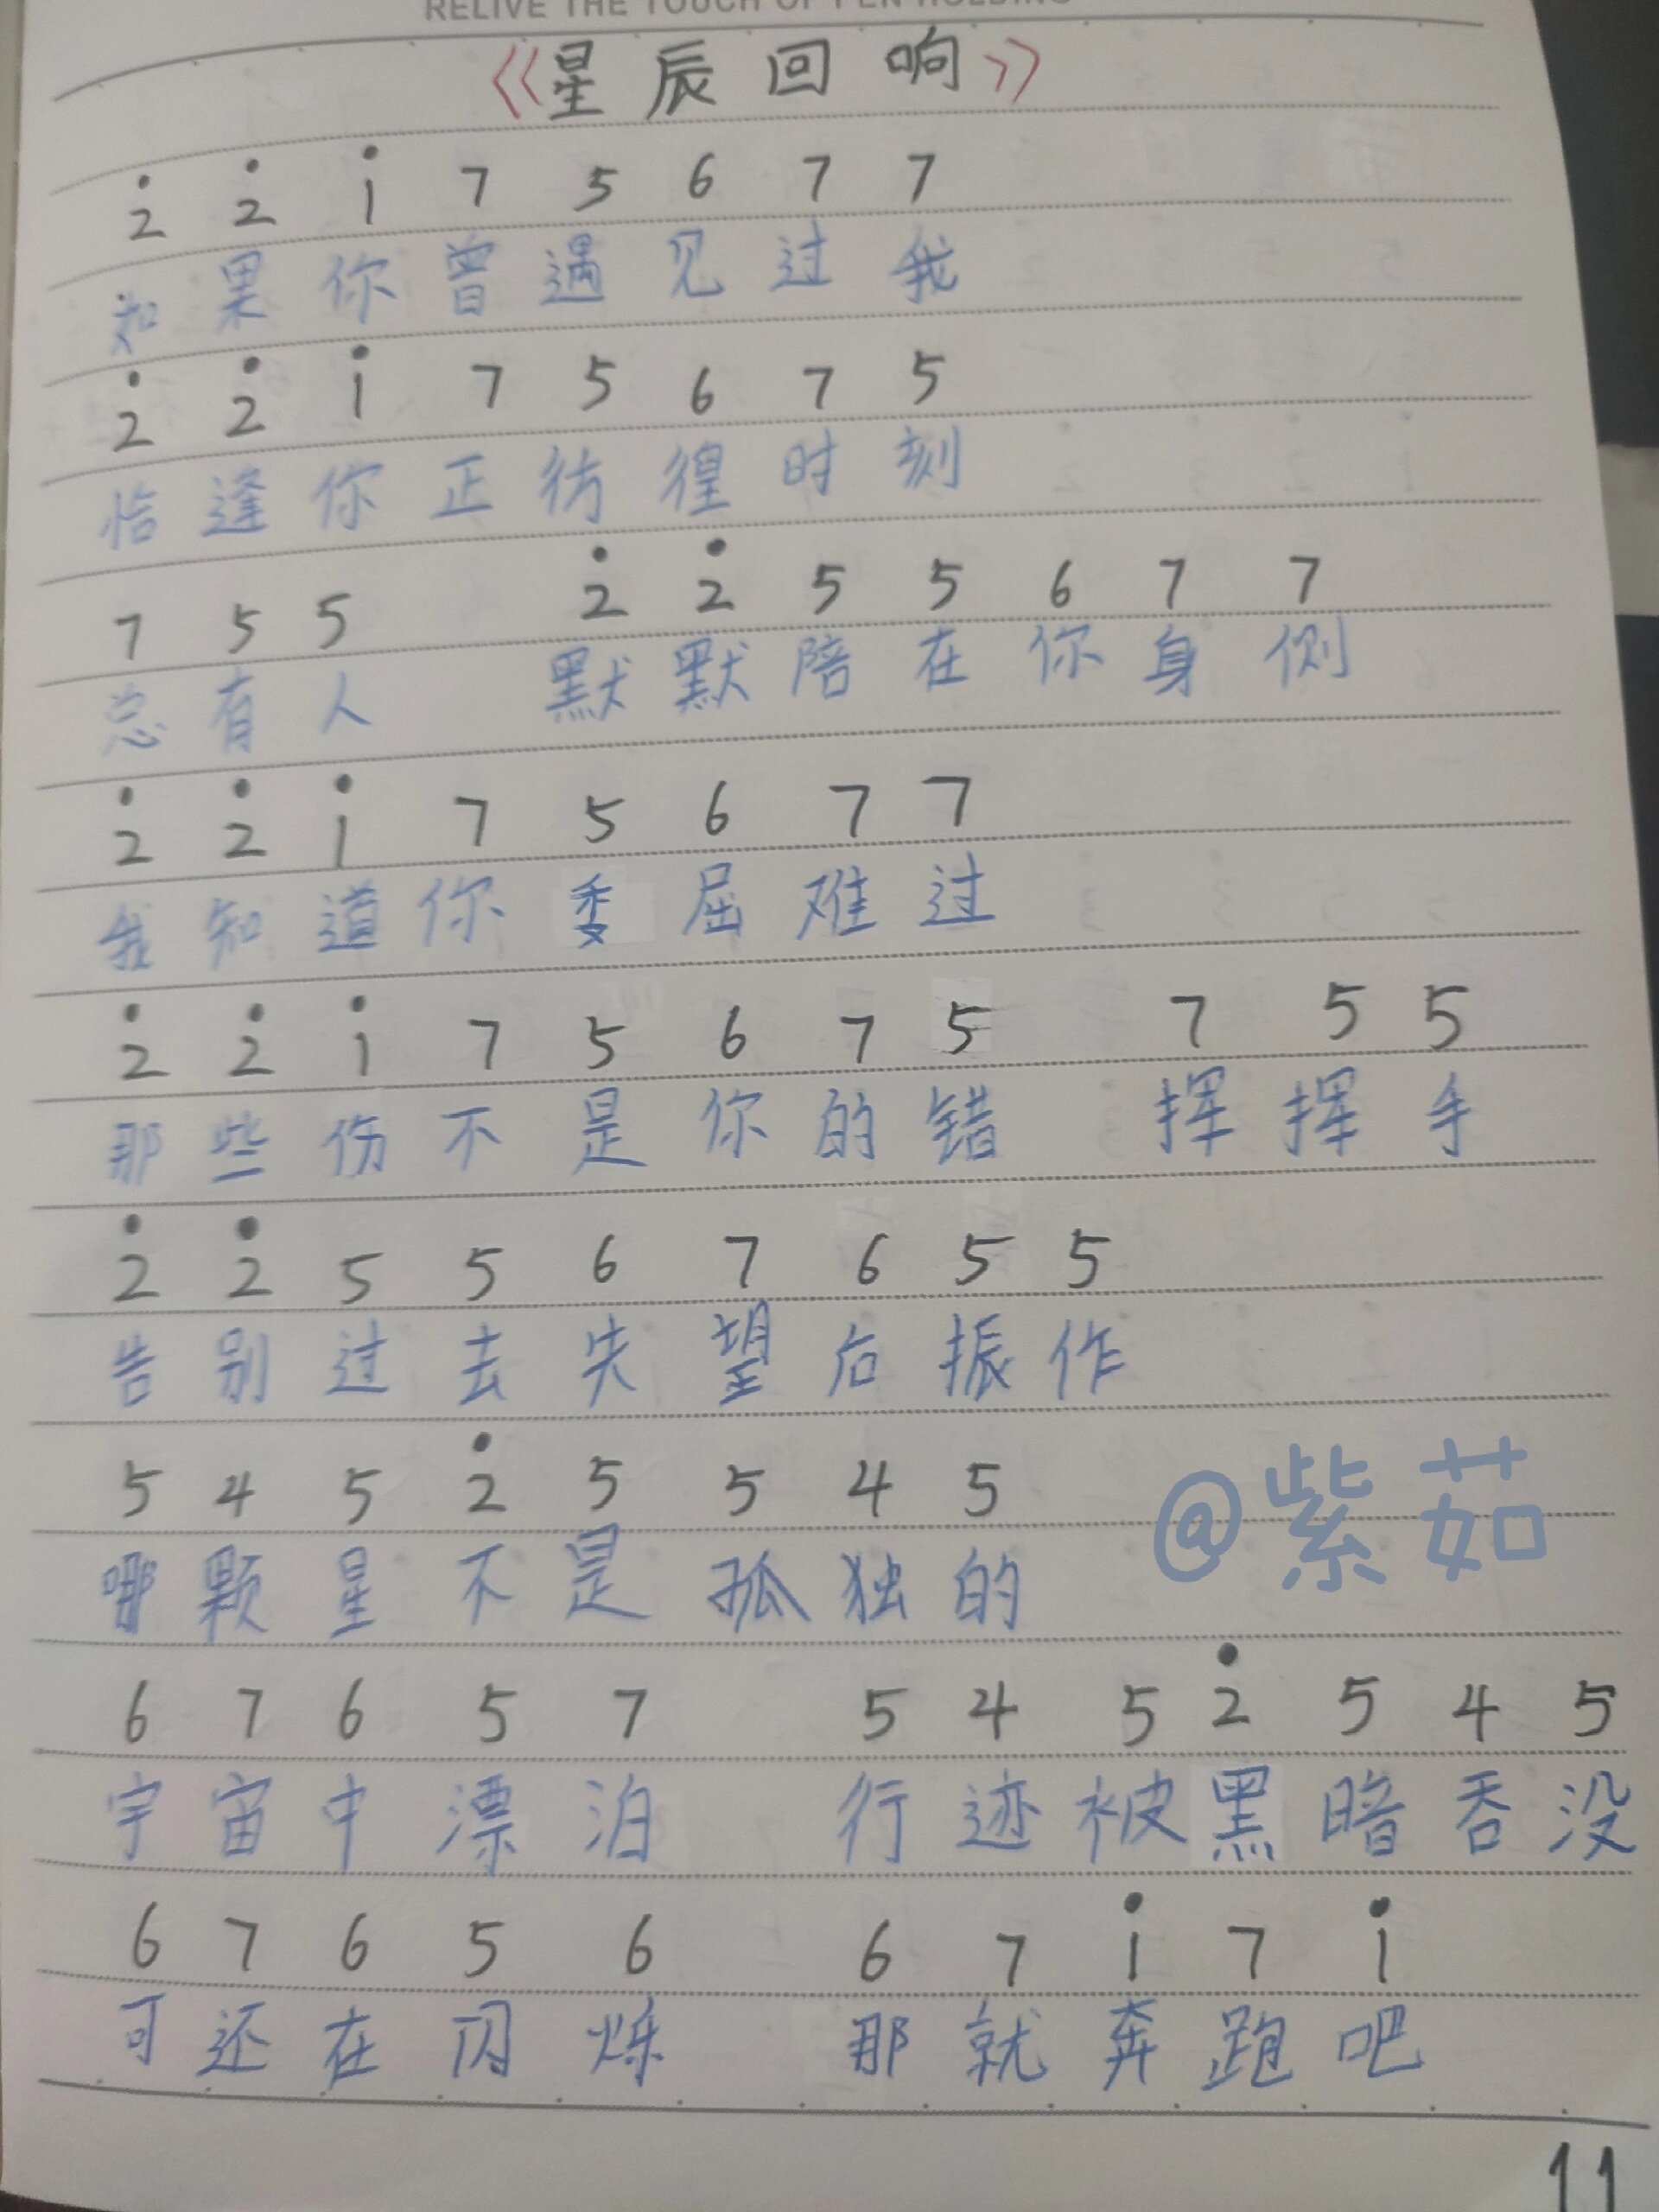 RELIVE THE TOUCH OF PEN HOLDING
《星辰回响》
2̇ 2̇ 1̇ 7 5 6 7 7
如果你曾遇见过我
2̇ 2̇ 1̇ 7 5 6 7 5
恰逢你正彷徨时刻
7 5 5 2̇ 2̇ 5 5 6 7 7
总有人 默默陪在你身侧
2̇ 2̇ 1̇ 7 5 6 7 7
我知道你委屈难过
2̇ 2̇ 1̇ 7 5 6 7 5 7 5 5
那些伤不是你的错 挥挥手
2̇ 2̇ 5 5 6 7 6 5 5
告别过去失望后振作
5 4 5 2̇ 5 5 4 5
哪颗星不是孤独的
@紫茹
6 7 6 5 7 5 4 5 2̇ 5 4 5
宇宙中漂泊 行迹被黑暗吞没
6 7 6 5 6 6 7 1̇ 7 1̇
可还在闪烁 那就奔跑吧
11